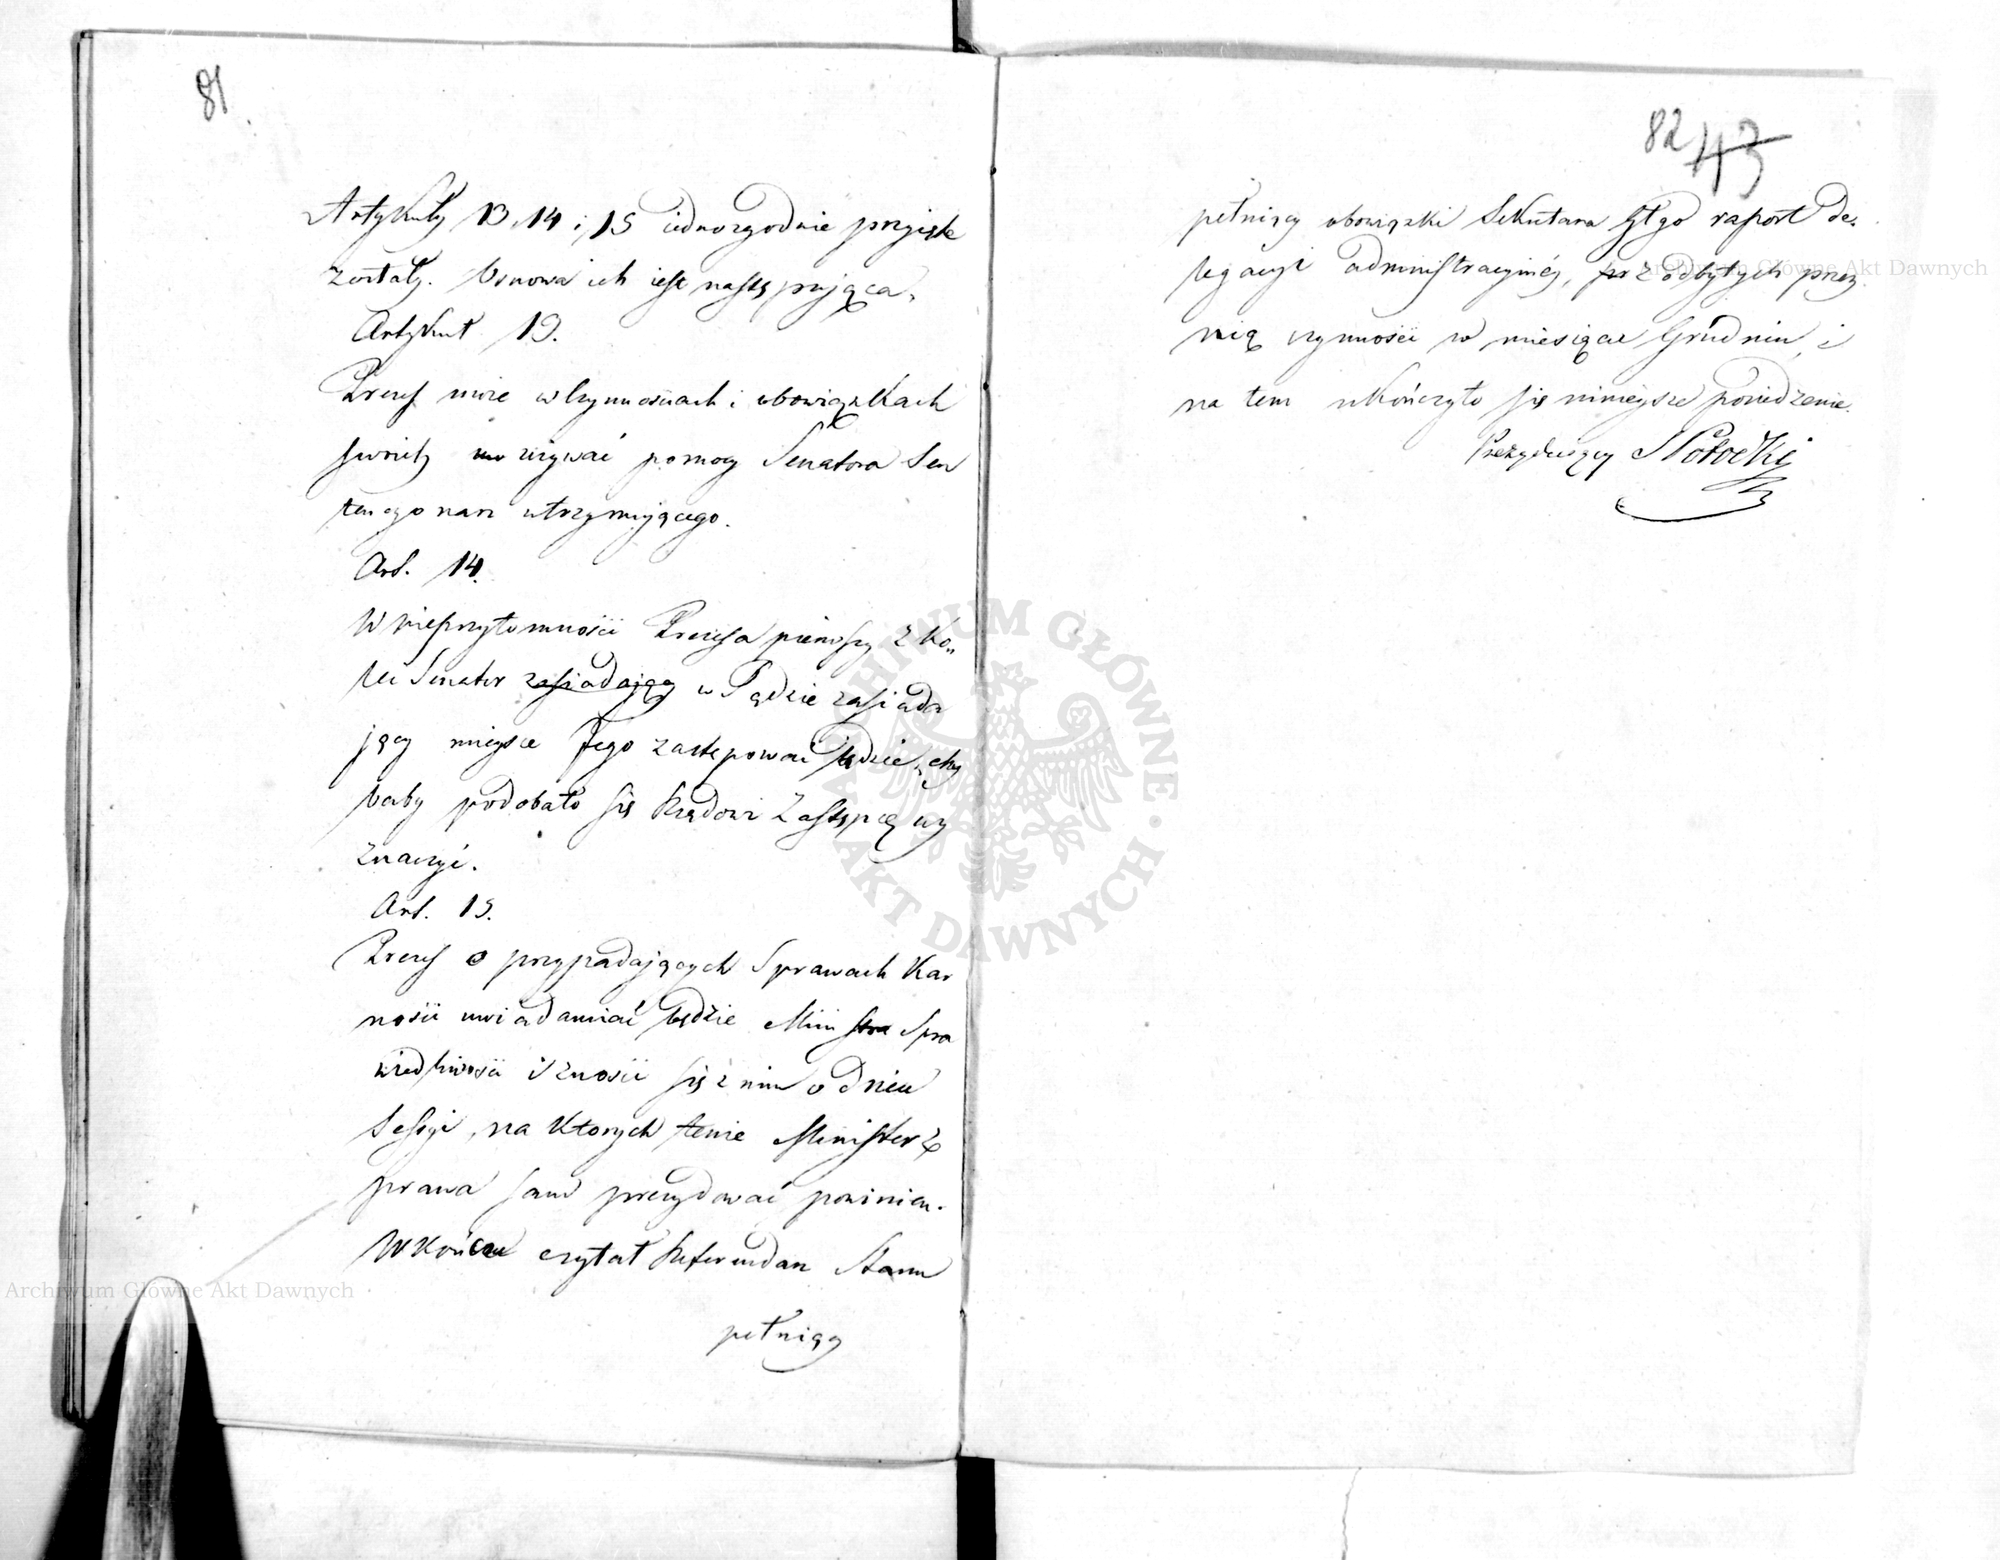 81.
Artykuły 13, 14 i, 15 iednozgodnie przyięte
zostały. Osnowa ich iest następuiąca.
Artykuł 13.
Prezes może w czynnościach i obowiązkach
swoich wzywać pomocy Senatora Sen
tencyonarz utrzymującego.
Art. 14.
W nieprzytomności Prezesa pierwszy z ko„
lei Senator zasiadający w Sądzie zasiada
jący mieysce Jego zastępować będzie, chy
baby podobało się Rządowi Zastępcę wy
znaczyć.
Art. 15.
Prezes o przypadających Sprawach Kar
ności uwiadamiać będzie Ministra Spra
wiedliwości i znosić się z nim o dniu
Sessyi, na których tenże Minister z
prawa sam prezydować powinien.
W końcu czytał Referendarz Stanu
pełniący
82 43
pełniący obowiązki Sekretarza Głgo raport de„
legacyi administracyinéy, z odbytych przez
nią czynności w miesiącu Grudniu, i
na tem ukończyło się ninieysze posiedzenie.
Prezyduiący S Potocki
ARCHIWUM GŁÓWNE AKT DAWNYCH
Archiwum Główne Akt Dawnych
Archiwum Główne Akt Dawnych